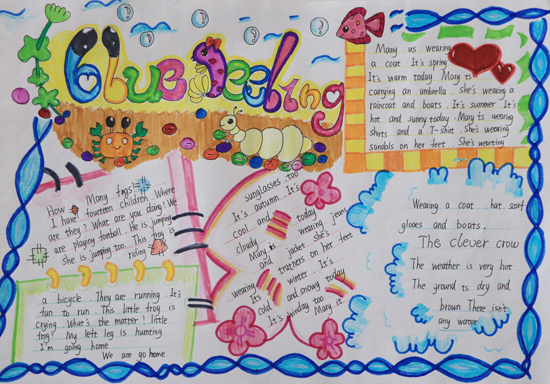 Blue feeling
Many us wearing
a coat It's spring
It's warm today Mary is
carrying an umbrella . She's wearing a
raincoat and boats . It's summer It's
hot and sunny today . Mary is wearing
shirts and a T-shit . She's wearing
sandals on her feet . She's wearing
How Many frogs!
I have fourteen children. Where
are they? What are you doing? We
are playing football. He is jumping
She is jumping too. This frog is
riding
a bicycle . They are running It's
fun to run . This little frog is
crying What's the matter! little
frog? My left leg is hunting
I'm going home
We are go home
sunglasses too
It's autumn It's
cool and today
cloudy wearing jean
Mary is
and jacket she's
tratters on her feet
wearing winter It's
It's
cold and snowy today
It's windy too Mary is
Wearing a coat hat scarf
glooes and boats .
The clever crow
The weather is very hot
The ground is dry and
brown There isn't
any water